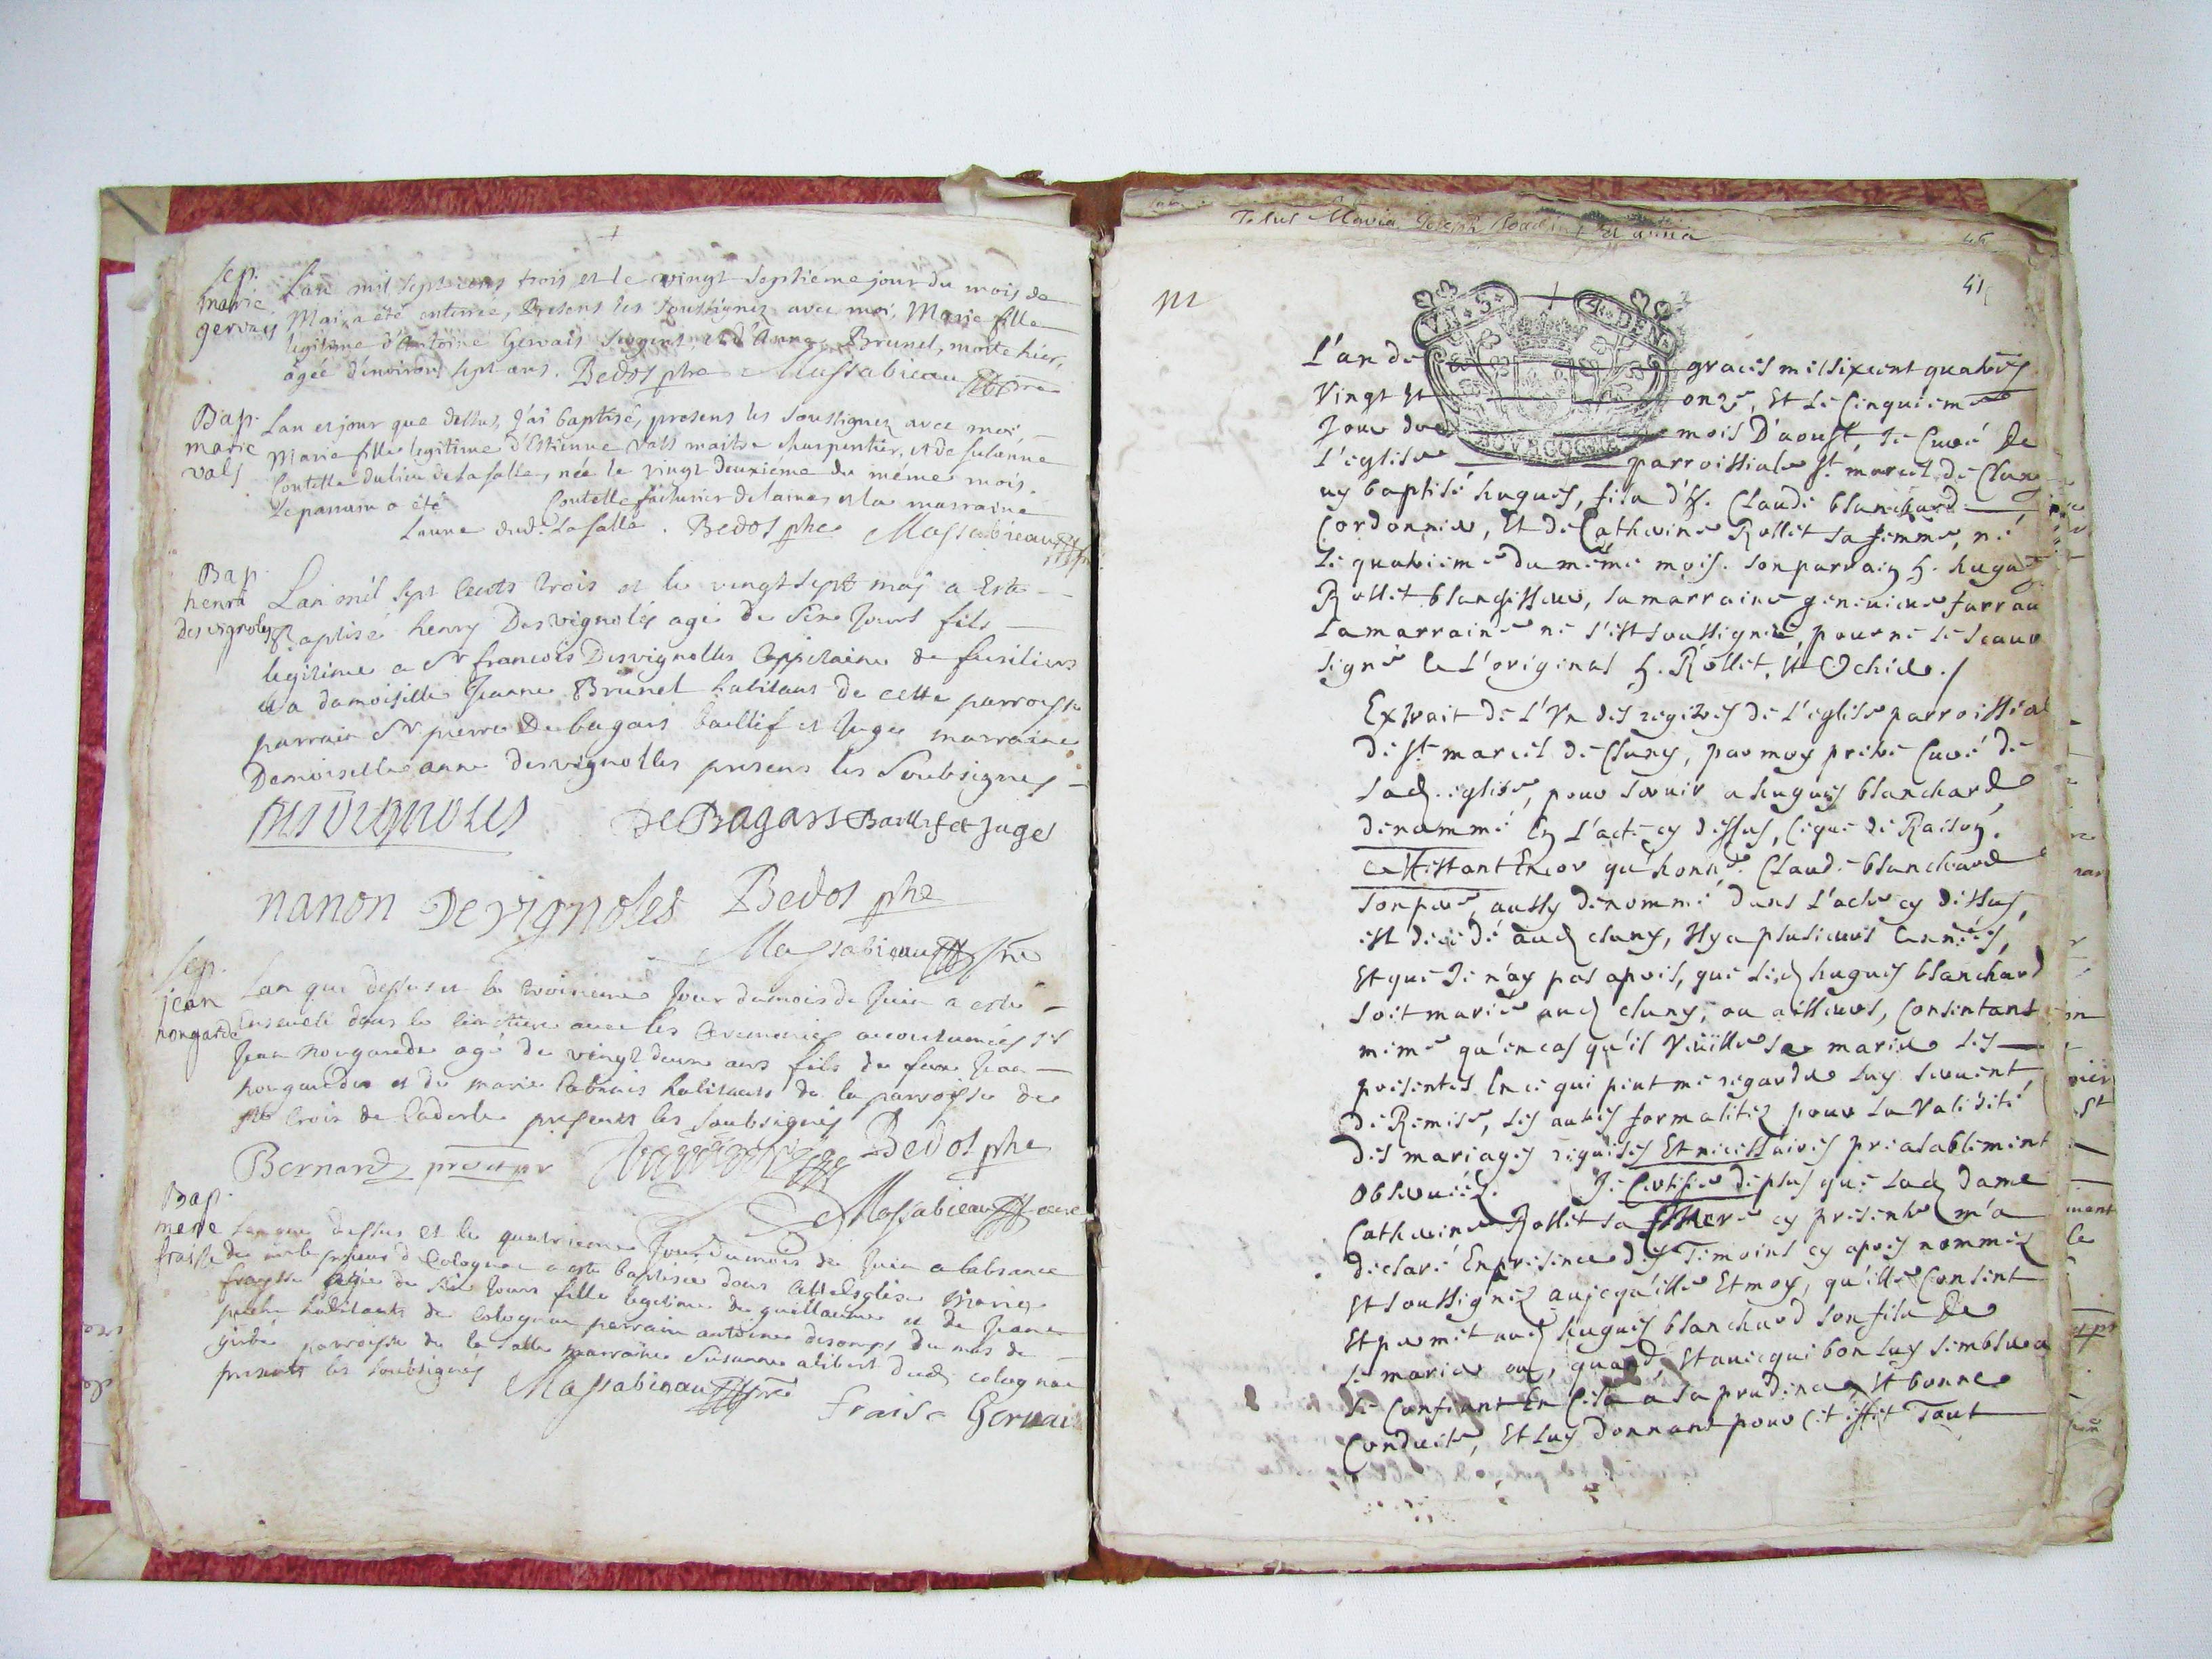 Sep.
marie
gervais
L'an mil sept cens trois, et le vingt septieme jour du mois de
Mai, a été enterrée, presens les soussignez avec moi, Marie fille
legitime d'Antoine Gervais sergent et d'Anne Brunel, morte hier,
agée d'environ sept ans. Bedos phe Massabieau
Bap.
marie
vals
L'an et jour que dessus j'ai baptisé, presens les soussignez avec moi,
Marie fille legitime d'Estienne Vals maitre charpentier, et de Susanne
Coutelle du lieu de la salle, née le vingt deuxiéme du méme mois.
Le parrain a été Coutelle facturier de laines et la marraine
Laune dud. La salle. Bedos phe Massabieau
Bap.
henri
des vignoles
L'an mil sept cents trois et le vingt sept may a esté
Baptisé henry Desvignoles agé de jours fils
legitime a Sr francois Desvignolles Cappitaine de fusiliers
et a damoiselle Jeanne Brunel habitans de cette parroisse
parrain Sr pierre Debagars baillif et Juge marraine
Demoiselle anne desvignolles presens les soubsignes
desvignolles De Bagars Baillif et Juge
nanon Devignoles Bedos phe
Massabieau
Sep.
jean
nougarede
L'an que dessus et le troisieme Jour du mois de Juin a esté
enseveli dans le cimetiere avec les ceremonies accoutumées
Jean nougarede agé de vingt deux ans fils de feu Jean
nougarede et de marie habitants de la parroisse de
Ste Croix de Caderle presents les soubsignés
Bernard Bedos phe
Massabieau
Bap.
marie
fraisse
L'an que dessus et le quatrieme Jour du mois de Juin a labsance
de prieur de Colognac a esté baptisée dans cette Esglise Marie
fraysse agée de six Jours fille legitime de guillaume et de Jeane
habitants de Colognac parrain antoine du mas de
parroisse de la salle marraine Susanne alibert dud. colognac
presents les soubsignés Massabieau
fraisse Gervais
Jesus Maria Joseph
46
41
m
L'an de graces mil six cent quatres
Vingt et onze, Et Le Cinquieme
Jour du mois D'aoust, Je Curé De
L'eglise parroissiale St. marcel de Cluny
ay baptisé hugues, fils d'h. Claude blanchard
Cordonnier, Et de Catherine Rollet sa femme, né
Le quatrieme du même mois. son parrain h. hugues
Rollet blanchisseur, sa marraine genevieve farrau
La marraine ne s'est soussignée, pour ne le scavoir
signé a L'original h. Rollet, Et Ochier./
Extrait de L'Vn des regitres de L'eglise parroissial
de St. marcel de Cluny, par moy pretre Curé de
Lad. eglise, pour servir a hugues blanchard
denommé En L'acte cy dessus, ce que de Raison.
attestant Encor qu'honn. Claude blanchard
son pere, aussy denommé dans L'acte cy dessus,
est decedé aud. cluny, Il y a plusieurs années,
Et que Je n'ay pas apris, que Led. hugues blanchard
soit marié aud. cluny, ou ailleurs, Consentant
meme qu'en cas qu'il Veüille se marier Les
presentes En ce qui peut me regarder Luy servent
de Remise, Les autres formalitez pour La Validité
des mariages requises Et necessaires prealablement
Observées. Je Certifie de plus que Lad. dame
Catherine Rollet sa mere cy presente m'a
declaré En presence des Temoins cy apres nommez
Et soussignez avec qu'elle Et moy, qu'elle Consent
Et permet aud. hugues blanchard son fils De
se marier ou, quand, Et avec qui bon Luy semblera
se Confiant En Cela a sa prudence, Et bonne
Conduite, Et Luy donnant pour cet effet Tout